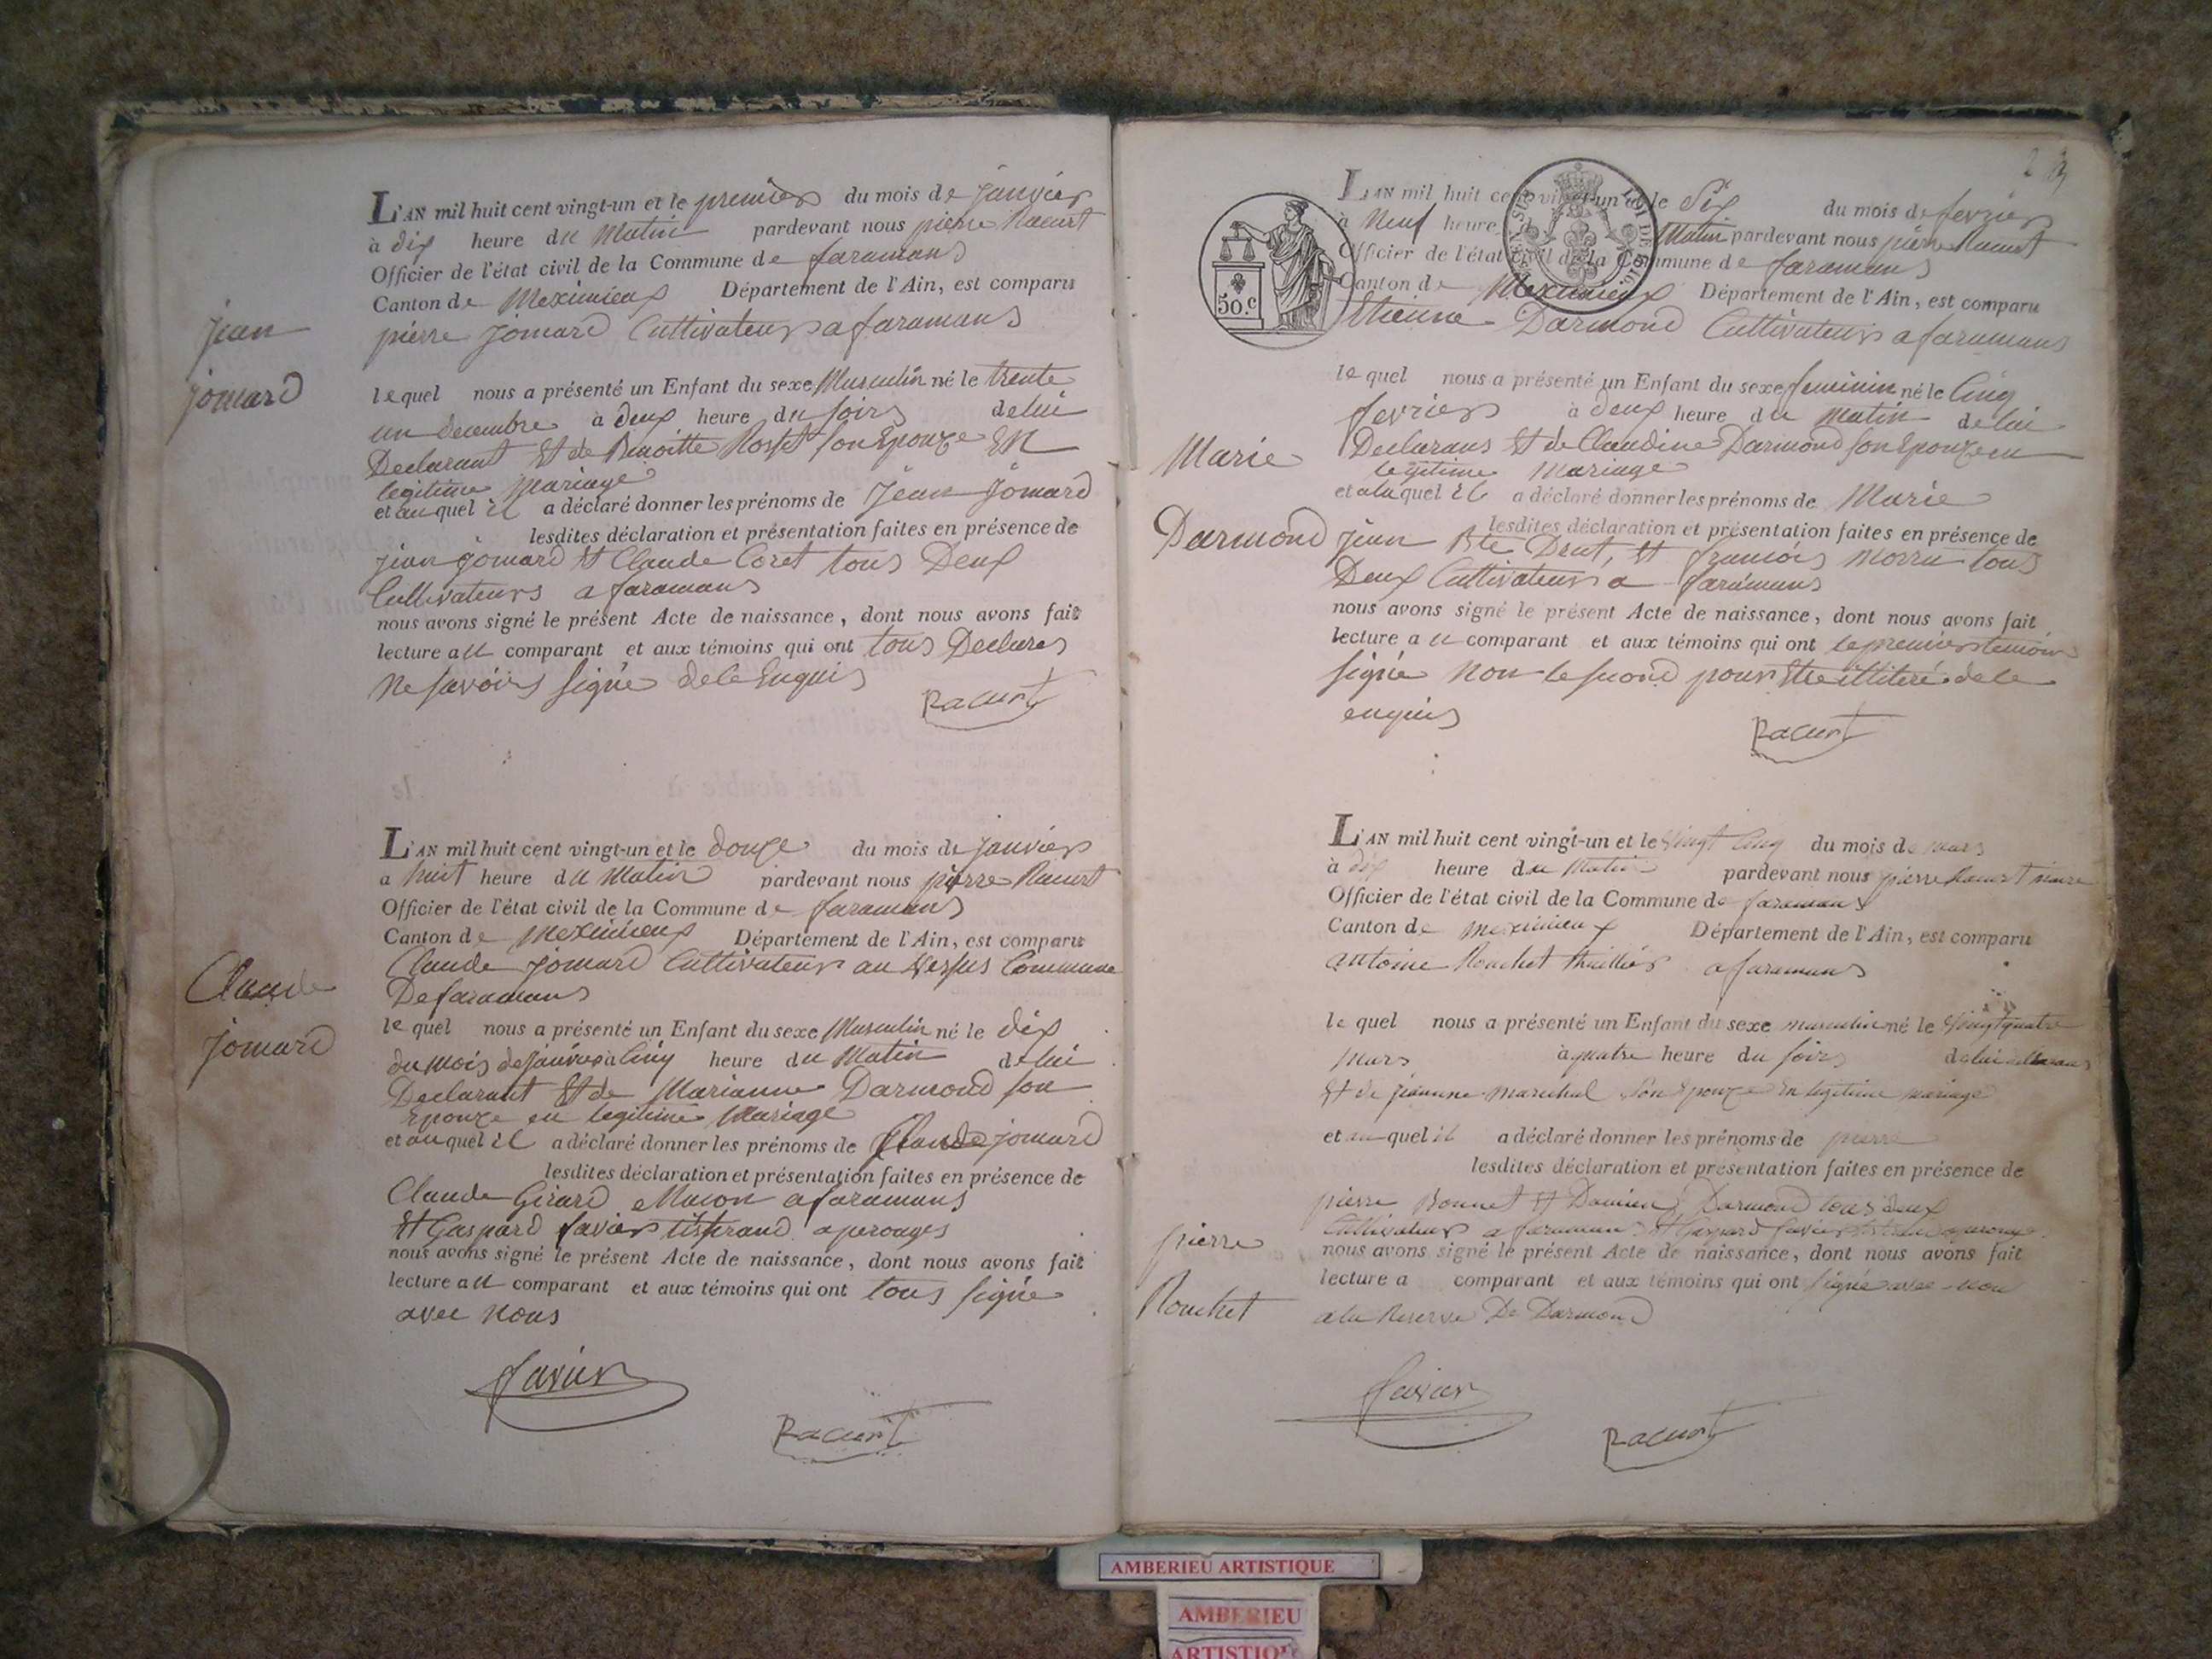 L'AN mil huit cent vingt-un et le premier du mois de janvier
à dix heure du Matin pardevant nous pierre Racurt
Officier de l'état civil de la Commune de faramans
Canton de Meximieux Département de l'Ain, est comparu
pierre jomard Cultivateur a faramans
jean
jomard
lequel nous a présenté un Enfant du sexe Masculin né le trente
un decembre à deux heure du soir de lui
Declarant Et de Benoitte Rosset son Epouze EN
legitime Mariage
et auquel il a déclaré donner les prénoms de Jean Jomard
lesdites déclaration et présentation faites en présence de
jean jomard Et Claude Coret tous Deux
Cultivateurs a faramans
nous avons signé le présent Acte de naissance, dont nous avons fait
lecture au comparant et aux témoins qui ont tous Declarés
Ne savoir signé de le Enquis
Racurt
L'AN mil huit cent vingt-un et le douze du mois de janvier
a huit heure du Matin pardevant nous pierre Racurt
Officier de l'état civil de la Commune de faramans
Canton de Meximieux Département de l'Ain, est comparu
Claude jomard Cultivateur au Commune
De faramans
Claude
jomard
lequel nous a présenté un Enfant du sexe Masculin né le dix
du mois de janvier a Cinq heure du Matin de lui
Declarant Et de Marianne Darmond son
Epouze en legitime Mariage
et auquel il a déclaré donner les prénoms de Claude jomard
lesdites déclaration et présentation faites en présence de
Claude Girard Macon a faramans
Et Gaspard favier tisserand a perouges
nous avons signé le présent Acte de naissance, dont nous avons fait
lecture au comparant et aux témoins qui ont tous signé
avec nous
favier
Racurt
50.c
L'AN mil huit cent vingt-un et le Six du mois de fevrier
à Neuf heure du Matin pardevant nous pierre Racurt
Officier de l'état civil de la Commune de faramans
Canton de Meximieux Département de l'Ain, est comparu
Etienne Darmond Cultivateur a faramans
lequel nous a présenté un Enfant du sexe feminin né le Cinq
fevrier à deux heure du matin de lui
Declarans Et de Claudine Darmond son Epouze en
legitime Mariage
Marie
Darmond
et alaquel il a déclaré donner les prénoms de Marie
lesdites déclaration et présentation faites en présence de
jean Bte Drut, Et francois Morru tous
Deux Cultivateurs a faramans
nous avons signé le présent Acte de naissance, dont nous avons fait
lecture au comparant et aux témoins qui ont le premier temoin
signé Non le second pour Etre illiteré de le
enquis
Racurt
L'AN mil huit cent vingt-un et le vingt Cinq du mois de mars
à dix heure du Matin pardevant nous pierre Racurt maire
Officier de l'état civil de la Commune de faramans
Canton de meximieux Département de l'Ain, est comparu
antoine Rouchet a faramans
lequel nous a présenté un Enfant du sexe masculin né le vingt quatre
mars à quatre heure du soir de lui
Et de jeanne marechal son Epouze En legitime mariage
et auquel il a déclaré donner les prénoms de pierre
lesdites déclaration et présentation faites en présence de
pierre Bonnet Et Damien Darmond tous deux
Cultivateur a faramans Et Gaspard favier
pierre
Rouchet
nous avons signé le présent Acte de naissance, dont nous avons fait
lecture a comparant et aux témoins qui ont signé avec nou
a la Reserve De Darmond
favier
Racurt
AMBERIEU ARTISTIQUE
AMBERIEU